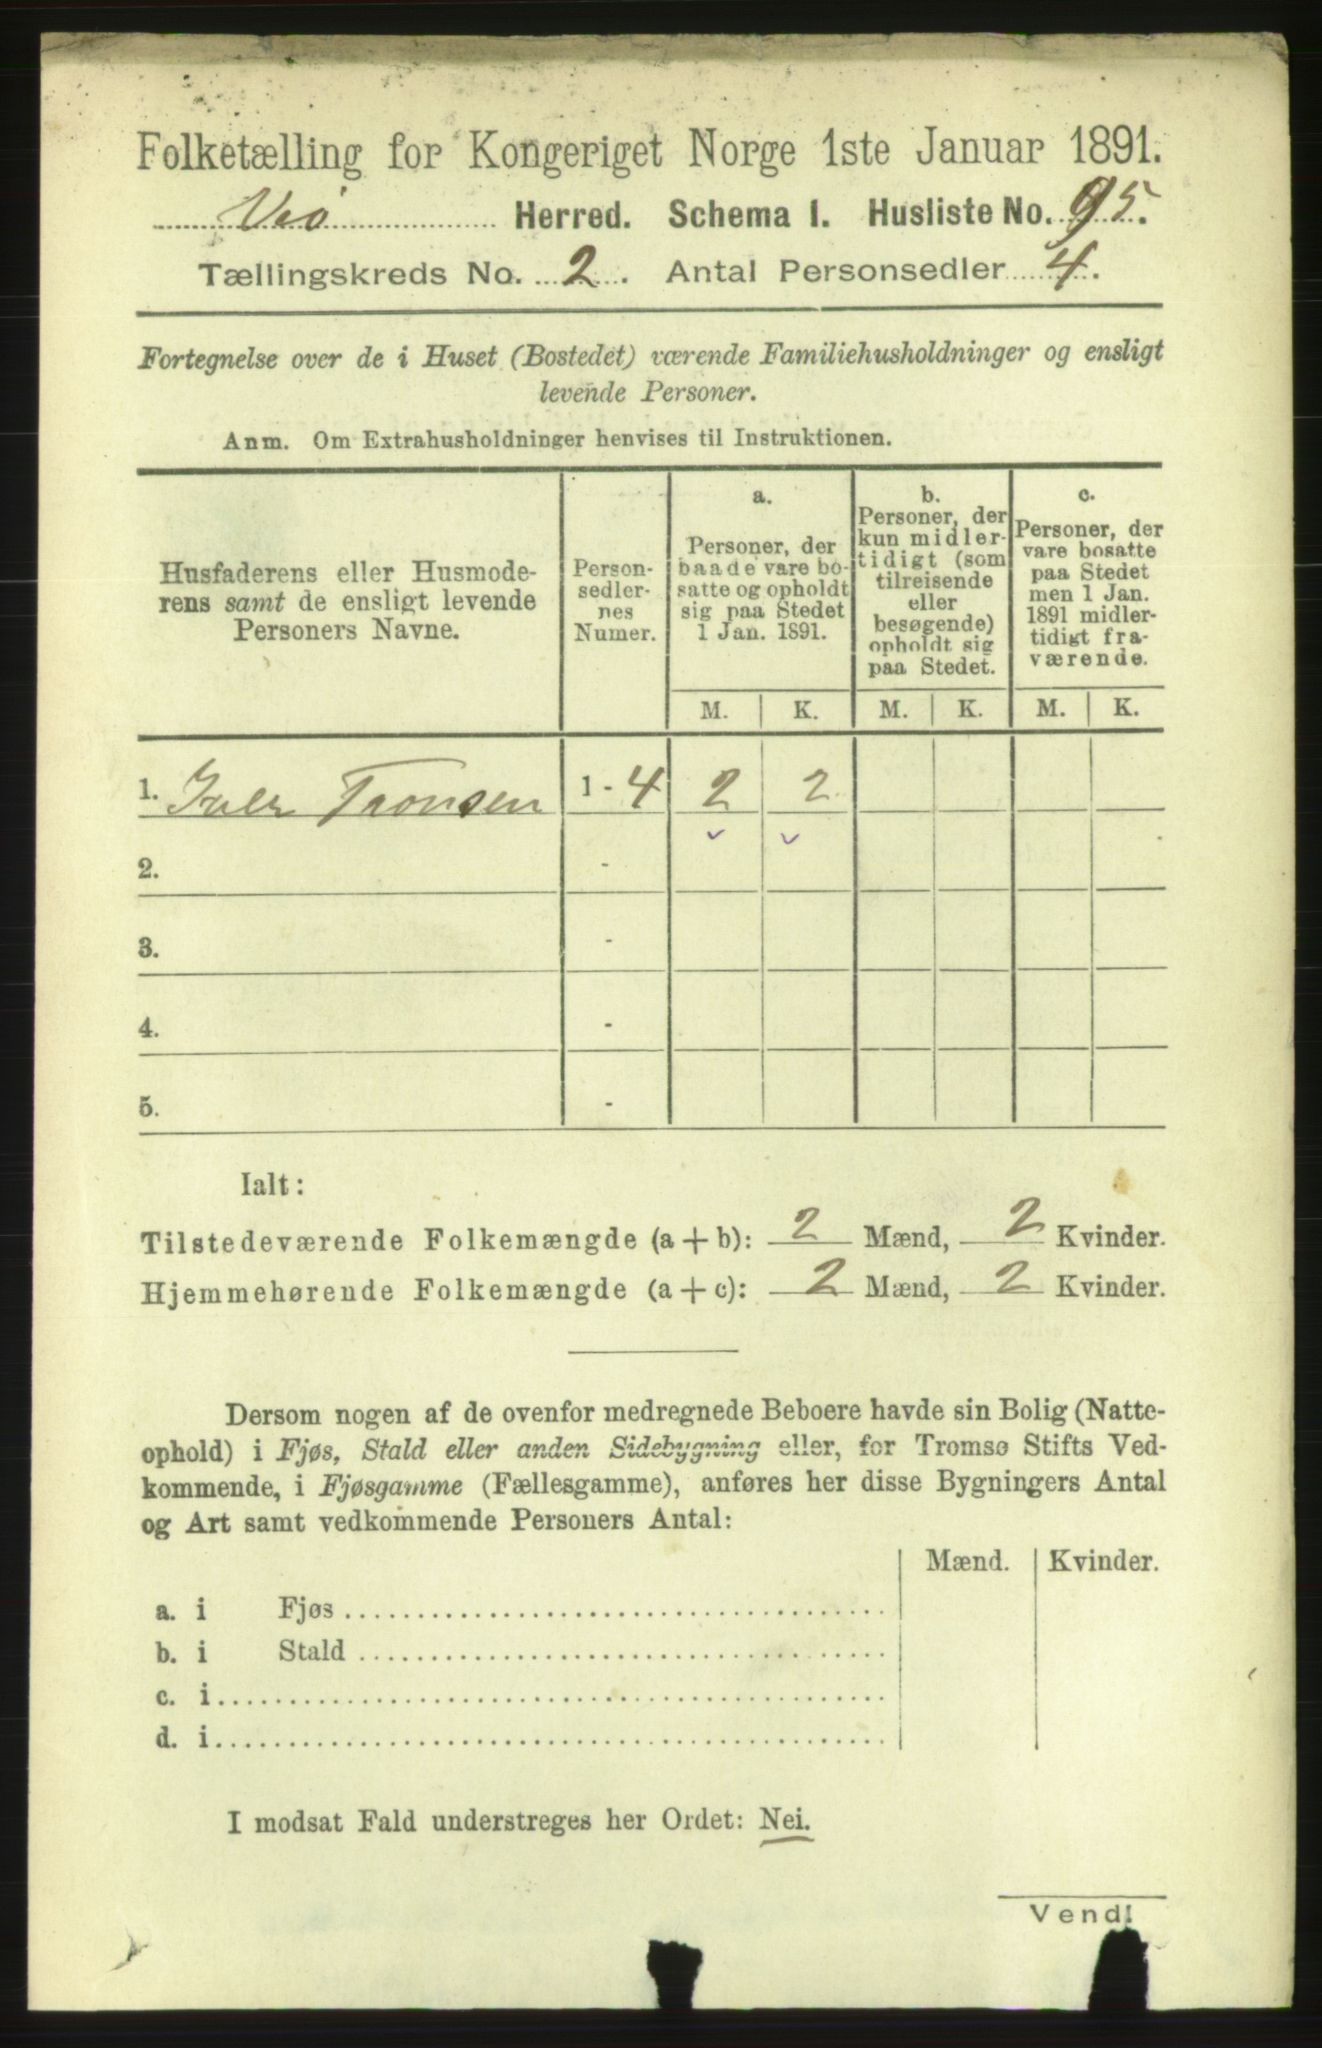 Folketælling for Kongeriget Norge 1ste Januar 1891.
Veø Herred. Schema I. Husliste No. 95.
Tællingskreds No. 2. Antal Personsedler 4.
Fortegnelse over de i Huset (Bostedet) værende Familiehusholdninger og ensligt
levende Personer.
Anm. Om Extrahusholdninger henvises til Instruktionen.
Husfaderens eller Husmode-
rens samt de ensligt levende
Personers Navne.
Person-
sedler-
nes
Numer.
a.
Personer, der
baade vare bo-
satte og opholdt
sig paa Stedet
1 Jan. 1891.
b.
Personer, der
kun midler-
tidigt (som
tilreisende
eller
besøgende)
opholdt sig
paa Stedet.
c.
Personer, der
vare bosatte
paa Stedet
men 1 Jan.
1891 midler-
tidigt fra-
værende.
M. K. M. K. M. K.
1. Tronsen 1 - 4 2 2
2. -
3. -
4. -
5. -
Ialt:
Tilstedeværende Folkemængde (a + b): 2 Mænd, 2 Kvinder.
Hjemmehørende Folkemængde (a + c): 2 Mænd, 2 Kvinder.
Dersom nogen af de ovenfor medregnede Beboere havde sin Bolig (Natte-
ophold) i Fjøs, Stald eller anden Sidebygning eller, for Tromsø Stifts Ved-
kommende, i Fjøsgamme (Fællesgamme), anføres her disse Bygningers Antal
og Art samt vedkommende Personers Antal:
Mænd. Kvinder.
a. i Fjøs
b. i Stald
c. i
d. i
I modsat Fald understreges her Ordet: Nei.
Vend!